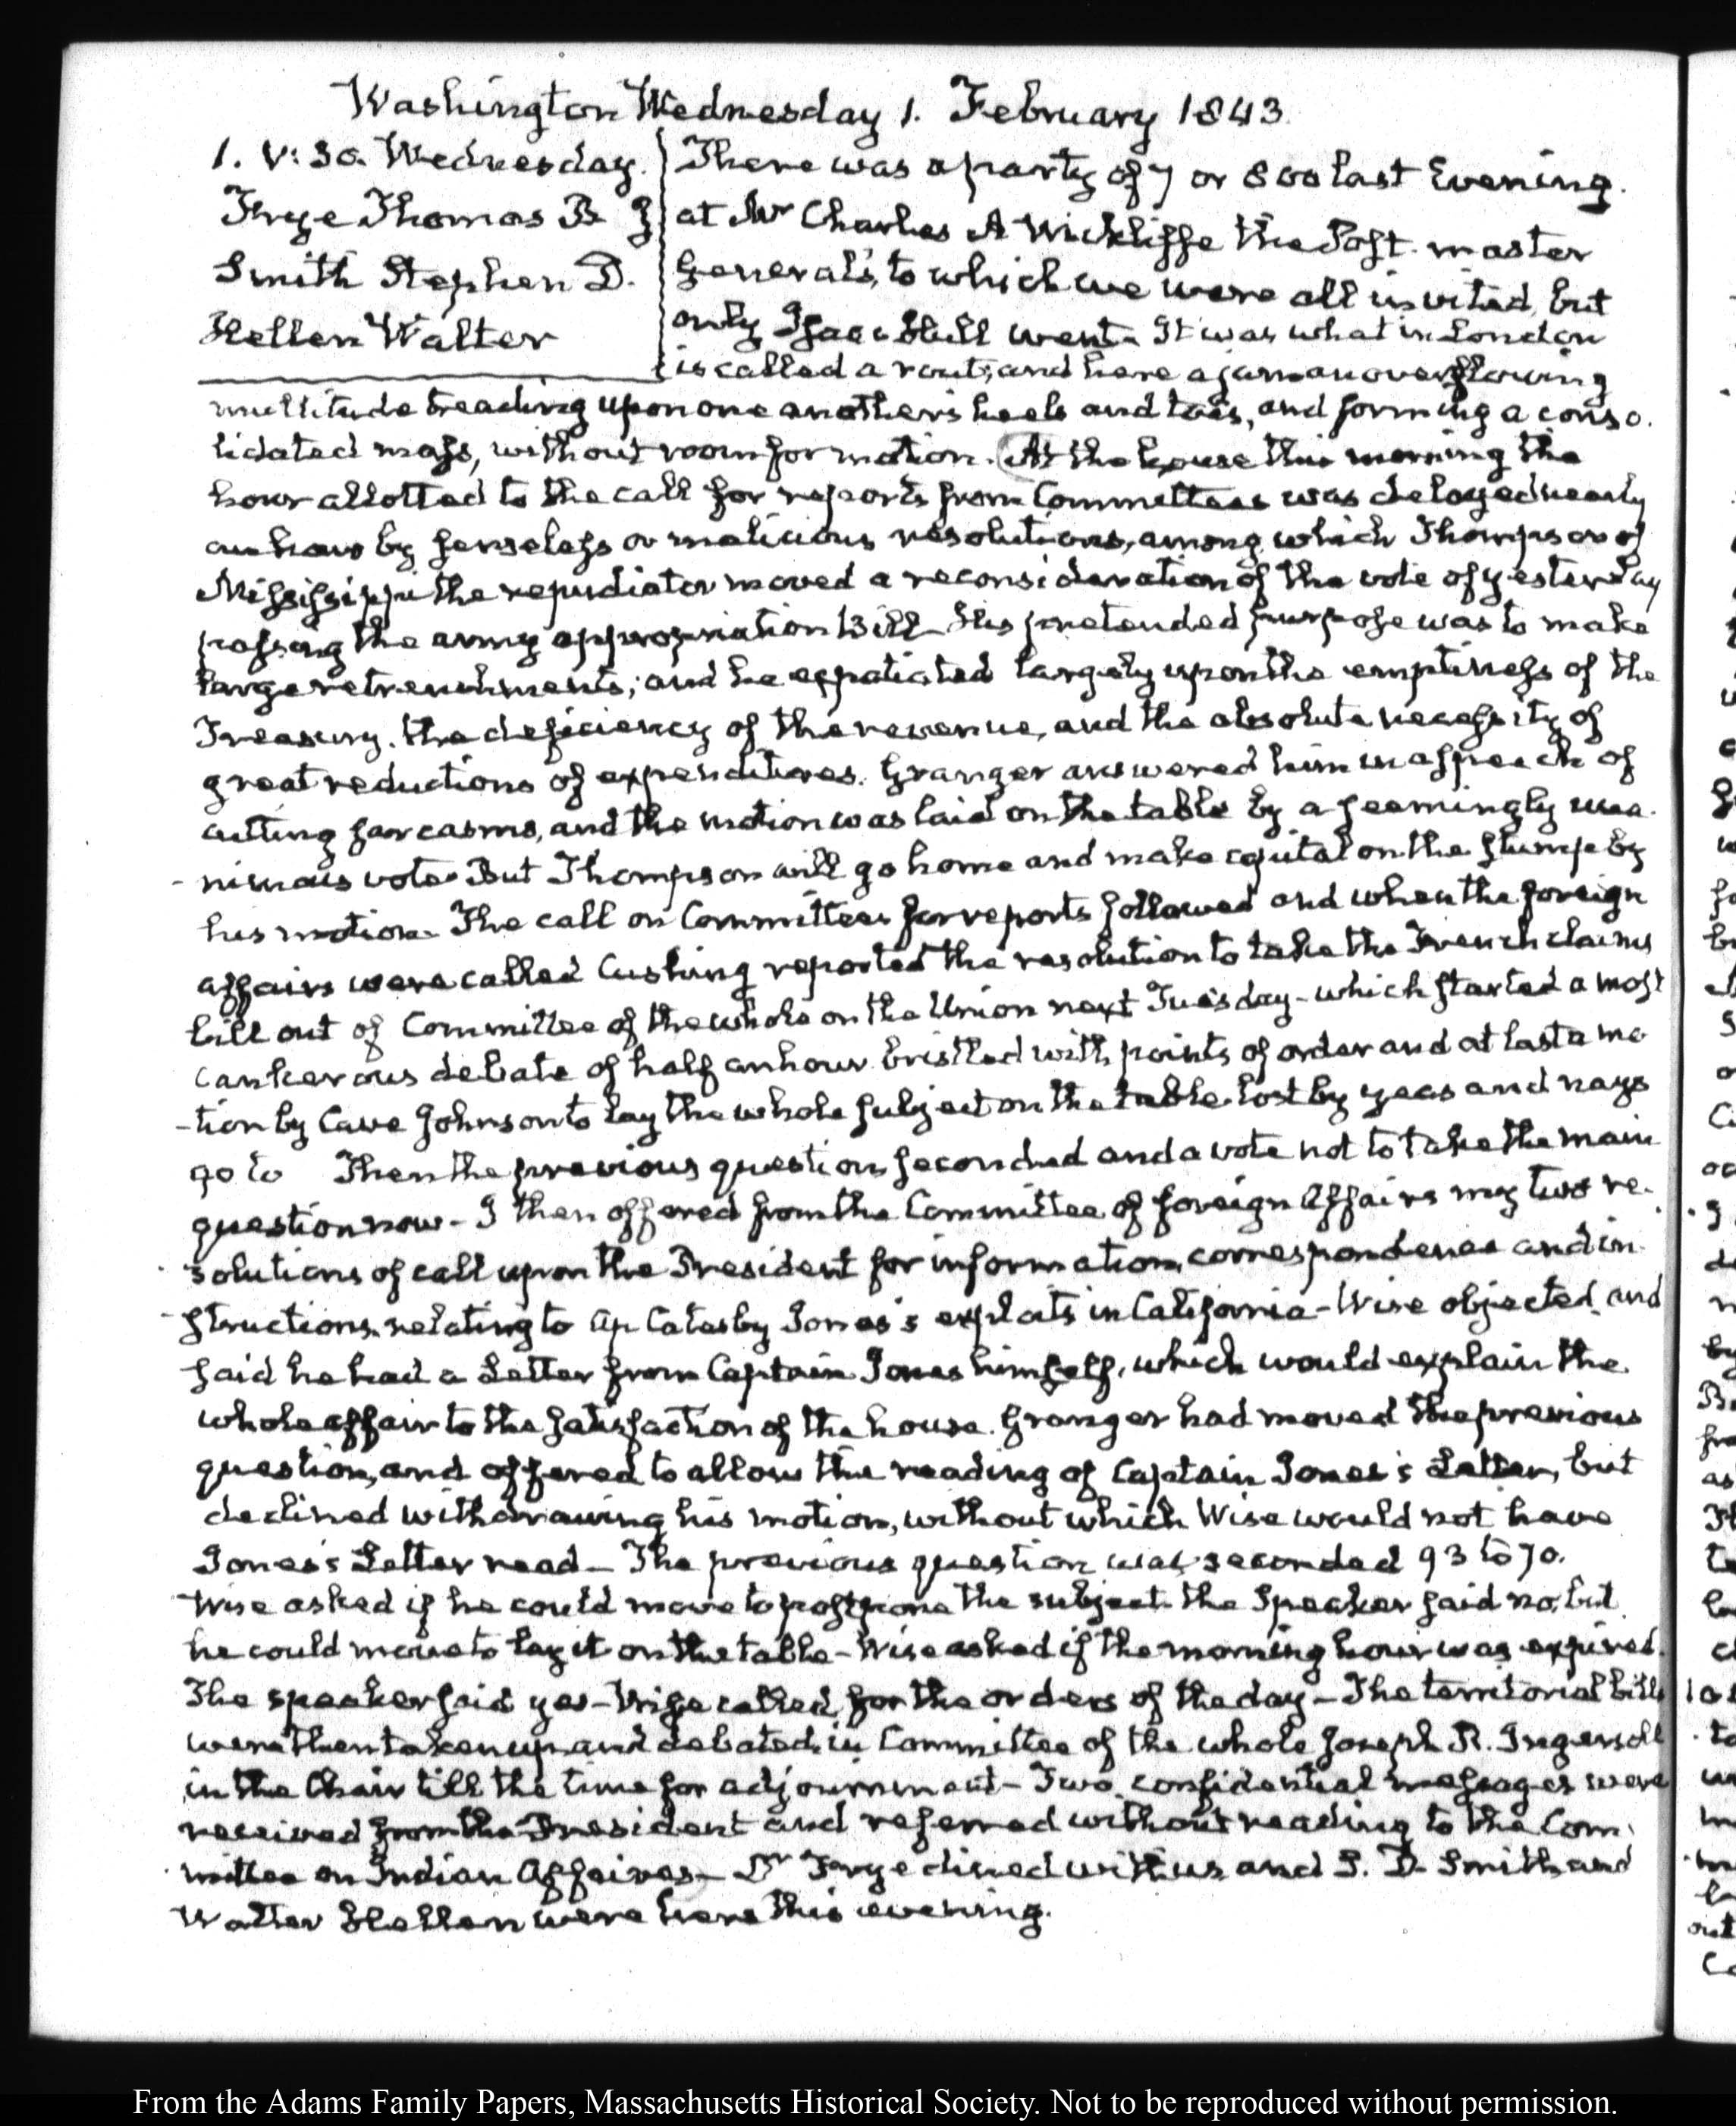 Washington Wednesday 1. February 1843.
1. V: 30. Wednesday.
Frye Thomas B J
Smith Stephen D.
Hellen Walter
There was a party of 7 or 800 last Evening.
at Mr Charles A Wickliffe the Post-master
General's, to which we were all invited, but
only Isaac Hull went. It was what in London
is called a rout; and here a jam an overflowing
multitude treading upon one another's heels and toes, and forming a conso.
lidated mass, without room for motion. At the house this morning the
hour allotted to the call for reports from Committees was delayed nearly
an hour by senseless or malicious resolutions, among which Thompson of
Mississippi the repudiator moved a reconsideration of the vote of yesterday
passing the army appropriation Bill— His pretended purpose was to make
large retrenchments; and he expatiated largely upon the emptiness of the
Treasury, the deficiency of the revenue, and the absolute necessity of
great reductions of expenditures. Granger answered him in a speech of
cutting sarcasms, and the motion was laid on the table by a seemingly una-
nimous vote. But Thompson will go home and make capital on the stump by
his motion. The call on Committees for reports followed and when the foreign
affairs were called Cushing reported the resolution to take the French claims
bill out of Committee of the whole on the Union next Tuesday - which started a most
cankerous debate of half an hour bristled with points of order and at last a mo
-tion by Cave Johnson to lay the whole subject on the table lost by yeas and nays
90 to Then the previous question seconded and a vote not to take the main
question now - I then offered from the Committee of foreign Affairs my two re-
solutions of call upon the President for information, correspondence and in-
structions, relating to Ap Catesby Jones's exploits in California - Wise objected, and
said he had a Letter from Captain Jones himself, which would explain the
whole affair to the satisfaction of the house. Granger had moved the previous
question, and offered to allow the reading of Captain Jones's Letter, but
declined withdrawing his motion, without which Wise would not have
Jones's Letter read— The previous question was seconded 93 to 70.
Wise asked if he could move to postpone the subject. the Speaker said no, but
he could move to lay it on the table - Wise asked if the morning hour was expired.
The speaker said yes - Wise called for the orders of the day - The territorial bills
were then taken up and debated in Committee of the whole Joseph R. Ingersoll
in the Chair till the time for adjournment - Two confidential messages were
received from the President and referred without reading to the Com-
mittee on Indian Affaires - Dr Frye dined with us and S. D. Smith and
Walter Hellen were here this evening.
From the Adams Family Papers, Massachusetts Historical Society. Not to be reproduced without permission.